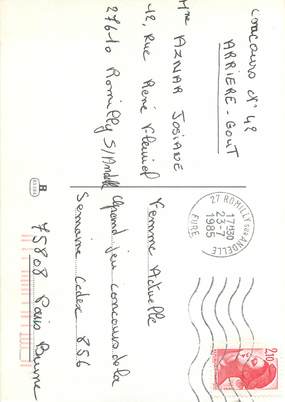 Concours n° 42
ARRIERE-GOUT
Mme AZNAR JOSIANE
12, Rue René
27610 Romilly S/Andelle
Femme Actuelle
Grand jeu concours de la
Semaine Cedex 856
75808 Paris Brune
27 ROMILLY SUR ANDELLE
17H30
23-7
1985
EURE
2,10
B